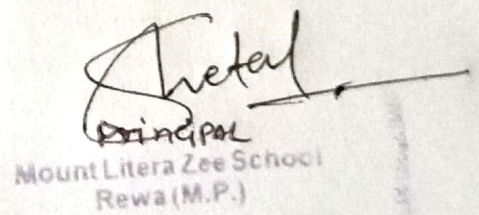 Shetal
PRINCIPAL
Mount Litera Zee School
Rewa (M.P.)